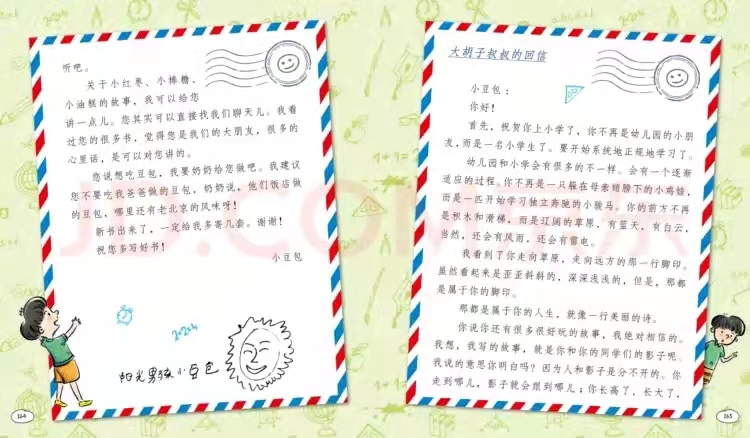 听吧。
关于小红枣、小棒糖、
小油糕的故事，我可以给您
讲一点儿。您其实可以直接找我们聊天儿。我看
过您的很多书，觉得您是我们的大朋友，很多的
心里话，是可以对您讲的。
您说想吃豆包，我要奶奶给您做吧。我建议
您不要吃我爸爸做的豆包，奶奶说，他们饭店做
的豆包，哪里还有老北京的风味呀！
新书出来了，一定给我多寄几套。谢谢！
祝您多写好书！
小豆包
阳光男孩小豆包
164
大胡子叔叔的回信
小豆包：
你好！
首先，祝贺你上小学了，你不再是幼儿园的小朋
友，而是一名小学生了。要开始系统地正规地学习了。
幼儿园和小学会有很多的不一样。会有一个逐渐
适应的过程。你不再是一只躲在母亲翅膀下的小鸡恼，
而是一匹开始学习独立奔驰的小骏马。你的前方不再
是积木和滑梯，而是辽阔的草原，有蓝天，有白云，
当然，还会有风雨，还会有雷电。
我看到了你走向草原，走向远方的那一行脚印。
虽然看起来是歪歪斜斜的，深深浅浅的，但是，那都
是属于你的脚印。
那都是属于你的人生，就像一行美丽的诗。
你说你还有很多很好玩的故事，我绝对相信的。
我想，我写的故事，就是你和你的同学们的影子呢。
我说的意思你明白吗？因为人和影子是分不开的。你
走到哪儿，影子就会跟到哪儿；你长高了，长大了，
165